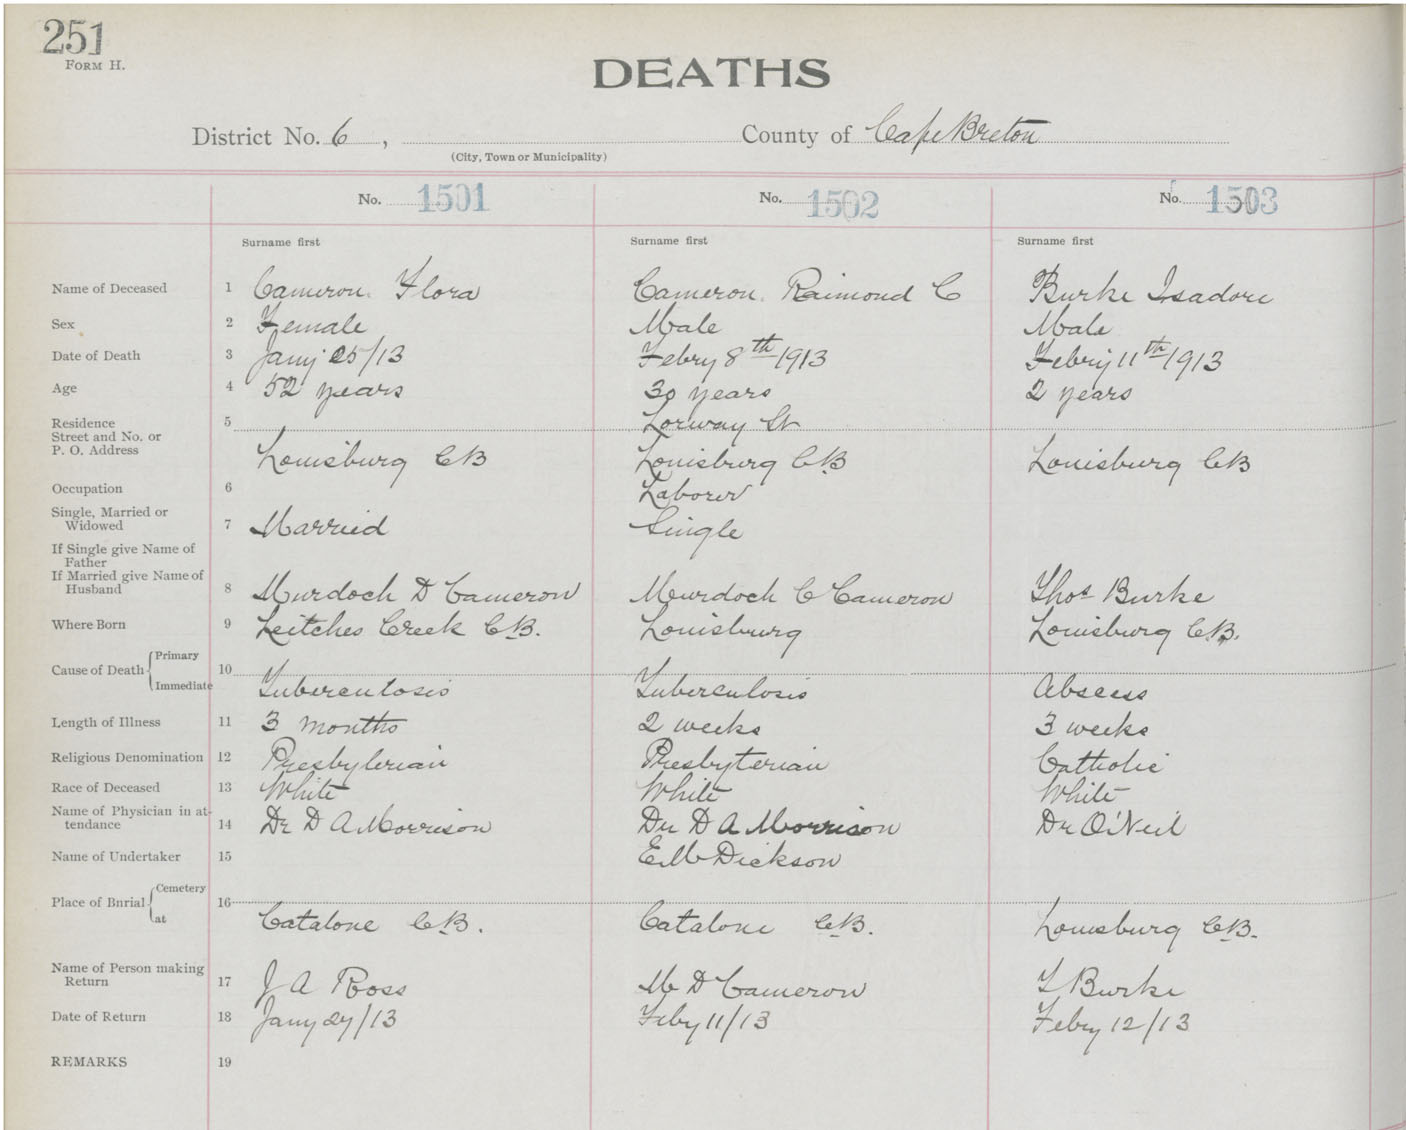 251
FORM H.
DEATHS
District No. 6, County of Cape Breton
(City, Town or Municipality)
No. 1501 No. 1502 No. 1503
Surname first Surname first Surname first
Name of Deceased 1 Cameron. Flora Cameron. Raimond C Burke Isadore
Sex 2 Female Male Male
Date of Death 3 Jany 25/13 Febry 8th 1913 Febry 11th 1913
Age 4 52 years 30 years 2 years
Residence 5 Lorway St
Street and No. or
P. O. Address Louisburg CB Louisburg CB Louisburg CB
Occupation 6 Laborer
Single, Married or
Widowed 7 Married Single
If Single give Name of
Father
If Married give Name of
Husband 8 Murdoch D Cameron Murdoch C Cameron Thos Burke
Where Born 9 Leitches Creek C.B. Louisburg Louisburg C.B.
Cause of Death Primary 10
Immediate Tuberculosis Tuberculosis Abscess
Length of Illness 11 3 months 2 weeks 3 weeks
Religious Denomination 12 Presbyterian Presbyterian Catholic
Race of Deceased 13 White White White
Name of Physician in at-
tendance 14 Dr D A Morrison Dr D A Morrison Dr O'Neil
Name of Undertaker 15 E M Dickson
Place of Burial Cemetery 16
at Catalone C.B. Catalone C.B. Louisburg C.B.
Name of Person making
Return 17 J A Ross M D Cameron T Burke
Date of Return 18 Jany 27/13 Feby 11/13 Febry 12/13
REMARKS 19